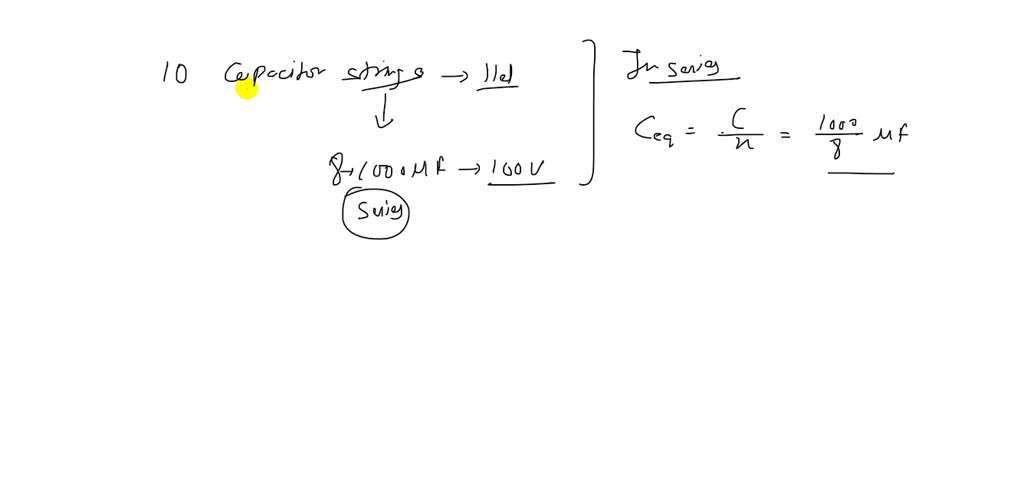 10 Capacitor strings → llel
8→1000 μF → 100V
Series
In series
Ceq = C/n = 1000/8 μF